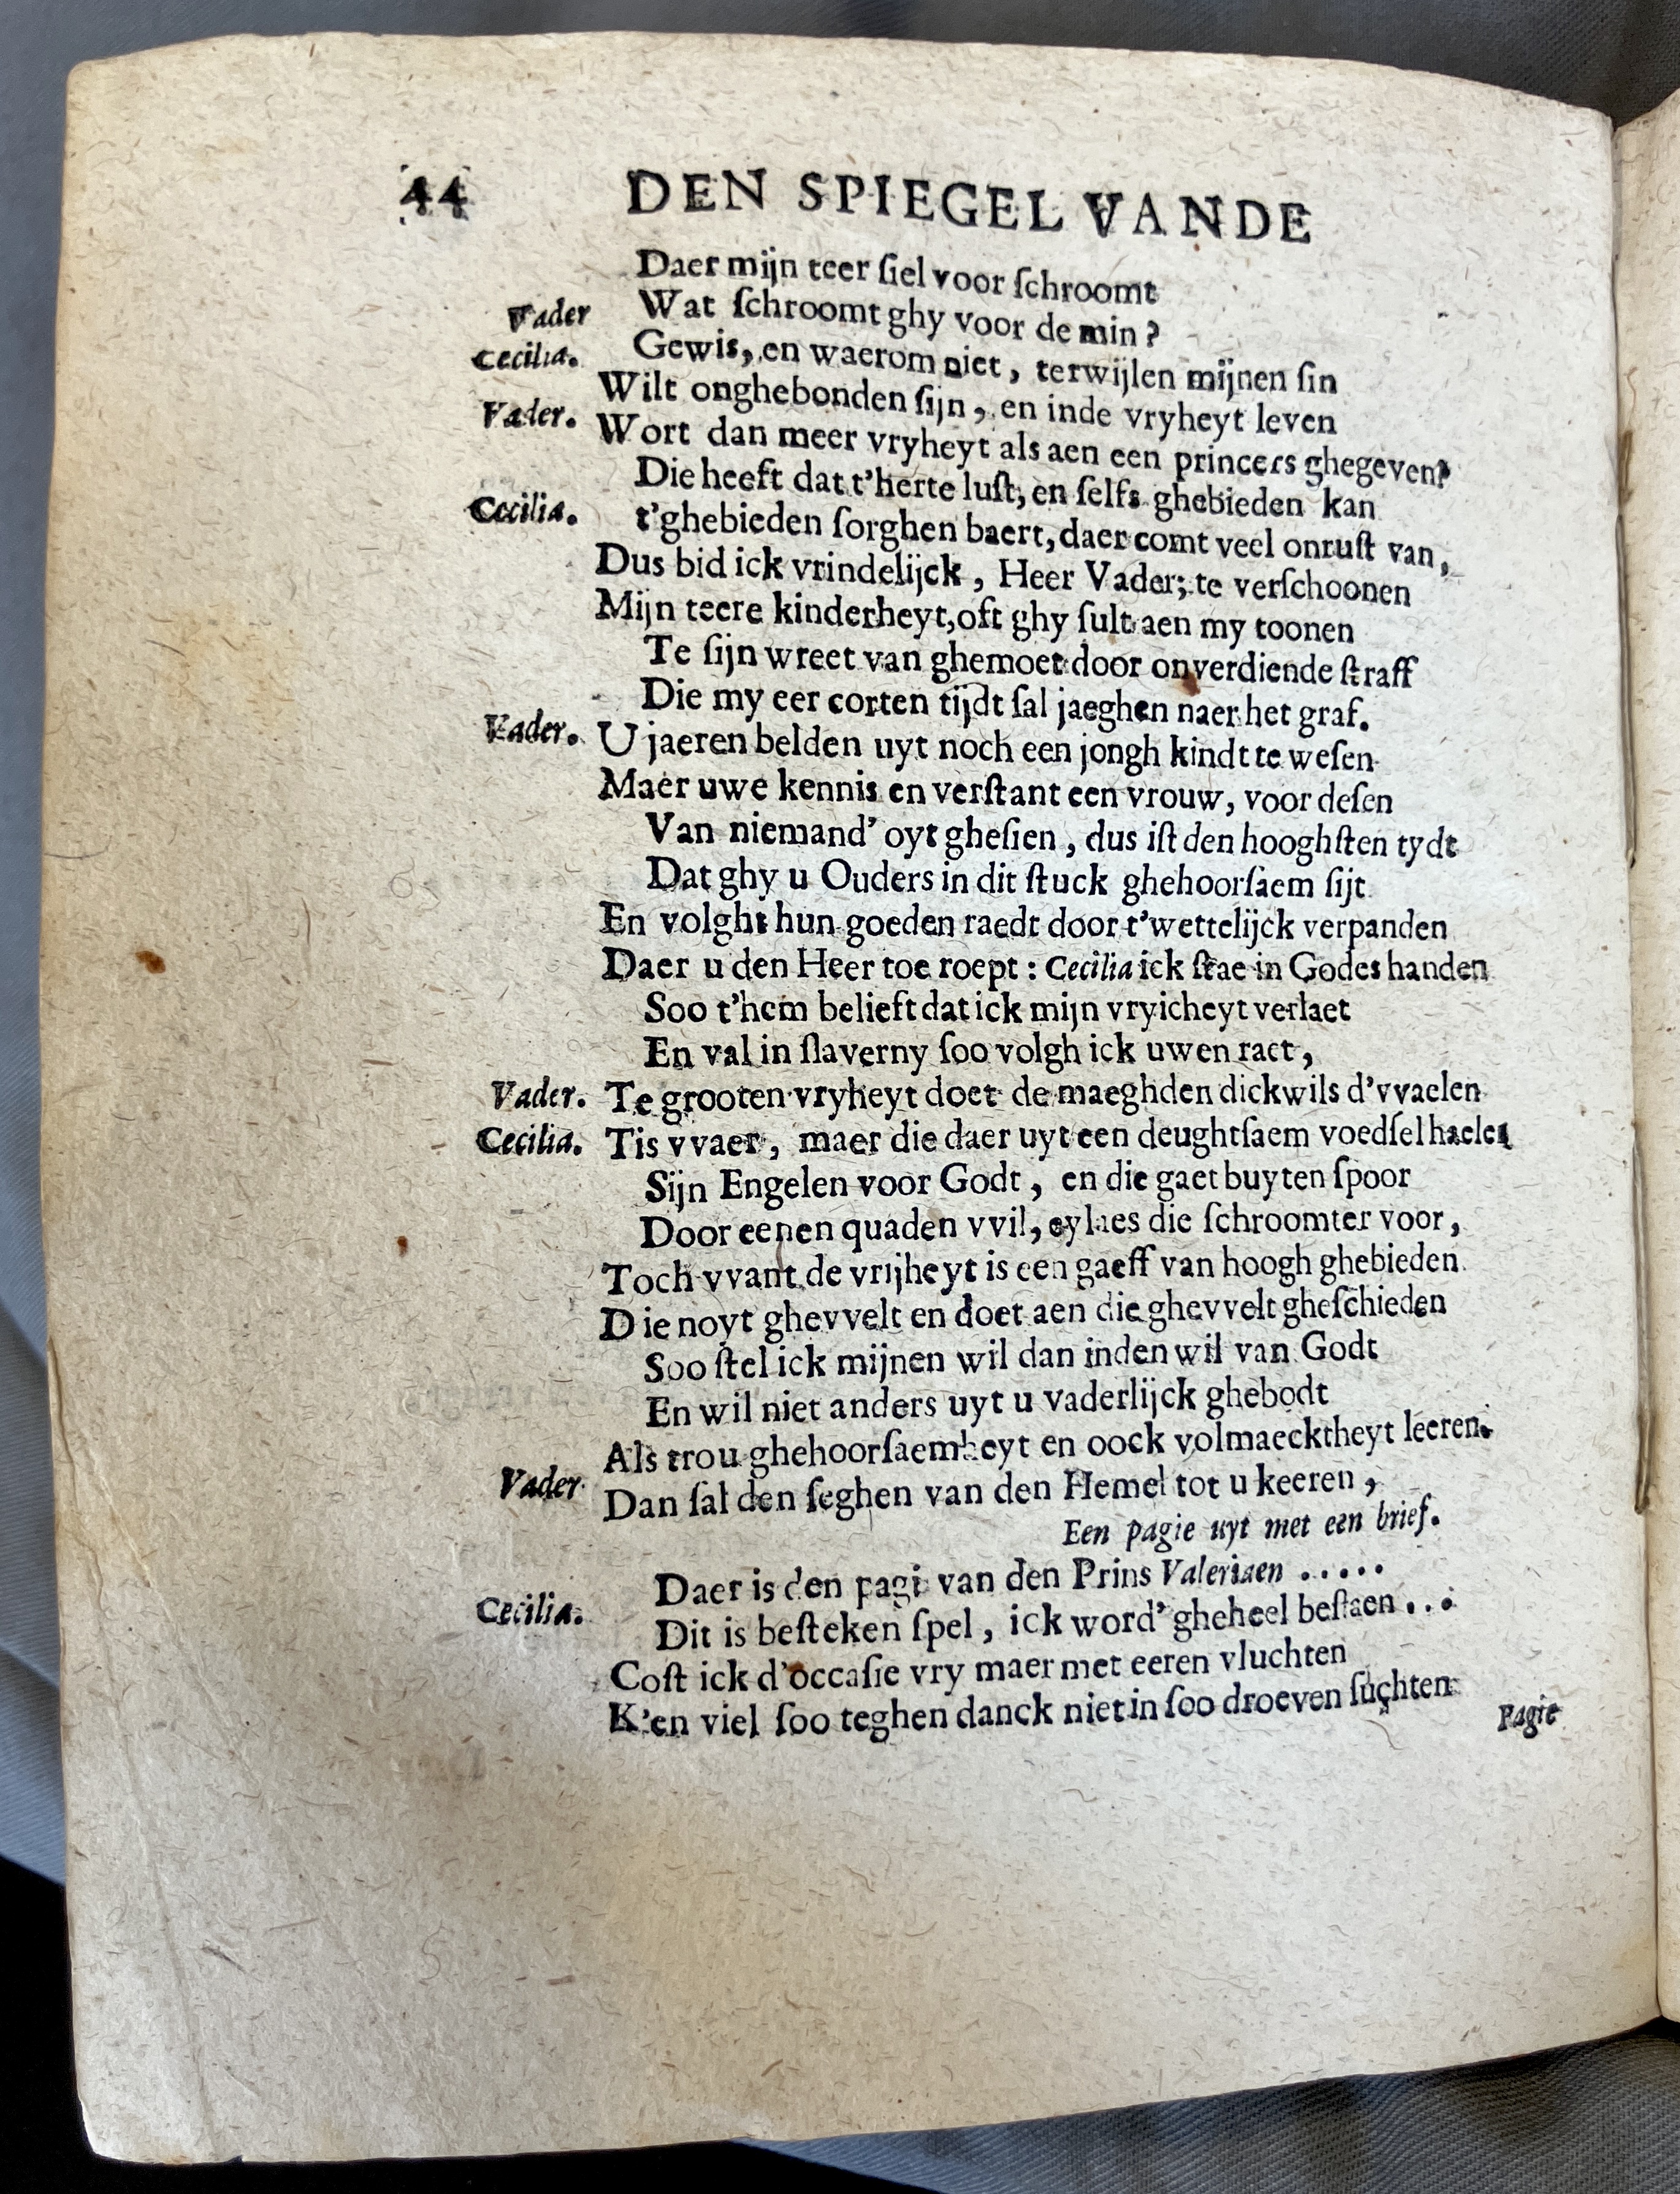 44 DEN SPIEGEL VANDE
Daer mijn teer ſiel voor ſchroomt
Vader Wat ſchroomt ghy voor de min?
Cecilia. Gewis, en waerom niet, terwijlen mijnen ſin
Wilt onghebonden ſijn, en inde vryheyt leven
Vader. Wort dan meer vryheyt als aen een princers ghegeven?
Die heeft dat t'herte luſt, en ſelfs ghebieden kan
Cecilia. t'ghebieden ſorghen baert, daer comt veel onruſt van,
Dus bid ick vrindelijck, Heer Vader; te verſchoonen
Mijn teere kinderheyt, oft ghy ſult aen my toonen
Te ſijn wreet van ghemoet door onverdiende ſtraff
Die my eer corten tijdt ſal jaeghen naer het graf.
Vader. U jaeren belden uyt noch een jongh kindt te weſen
Maer uwe kennis en verſtant een vrouw, voor deſen
Van niemand' oyt gheſien, dus iſt den hooghſten tydt
Dat ghy u Ouders in dit ſtuck ghehoorſaem ſijt
En volght hun goeden raedt door t'wettelijck verpanden
Daer u den Heer toe roept: Cecilia ick ſtae in Godes handen
Soo t'hem belieft dat ick mijn vryicheyt verlaet
En val in ſlaverny ſoo volgh ick uwen raet,
Vader. Te grooten vryheyt doet de maeghden dickwils d'vvaelen
Cecilia. Tis vvaer, maer die daer uyt een deughtſaem voedſel haelen
Sijn Engelen voor Godt, en die gaet buyten ſpoor
Door eenen quaden vvil, eylaes die ſchroomter voor,
Toch vvant de vrijheyt is een gaeff van hoogh ghebieden
Die noyt ghevvelt en doet aen die ghevvelt gheſchieden
Soo ſtel ick mijnen wil dan inden wil van Godt
En wil niet anders uyt u vaderlijck ghebodt
Als trou ghehoorſaemheyt en oock volmaecktheyt leeren.
Vader Dan ſal den ſeghen van den Hemel tot u keeren,
Een pagie uyt met een brief.
Daer is den pagi van den Prins Valeriaen . . . . . .
Cecilia. Dit is beſteken ſpel, ick word' gheheel beſtaen . . .
Coſt ick d'occaſie vry maer met eeren vluchten
K'en viel ſoo teghen danck niet in ſoo droeven ſuchten
Pagie